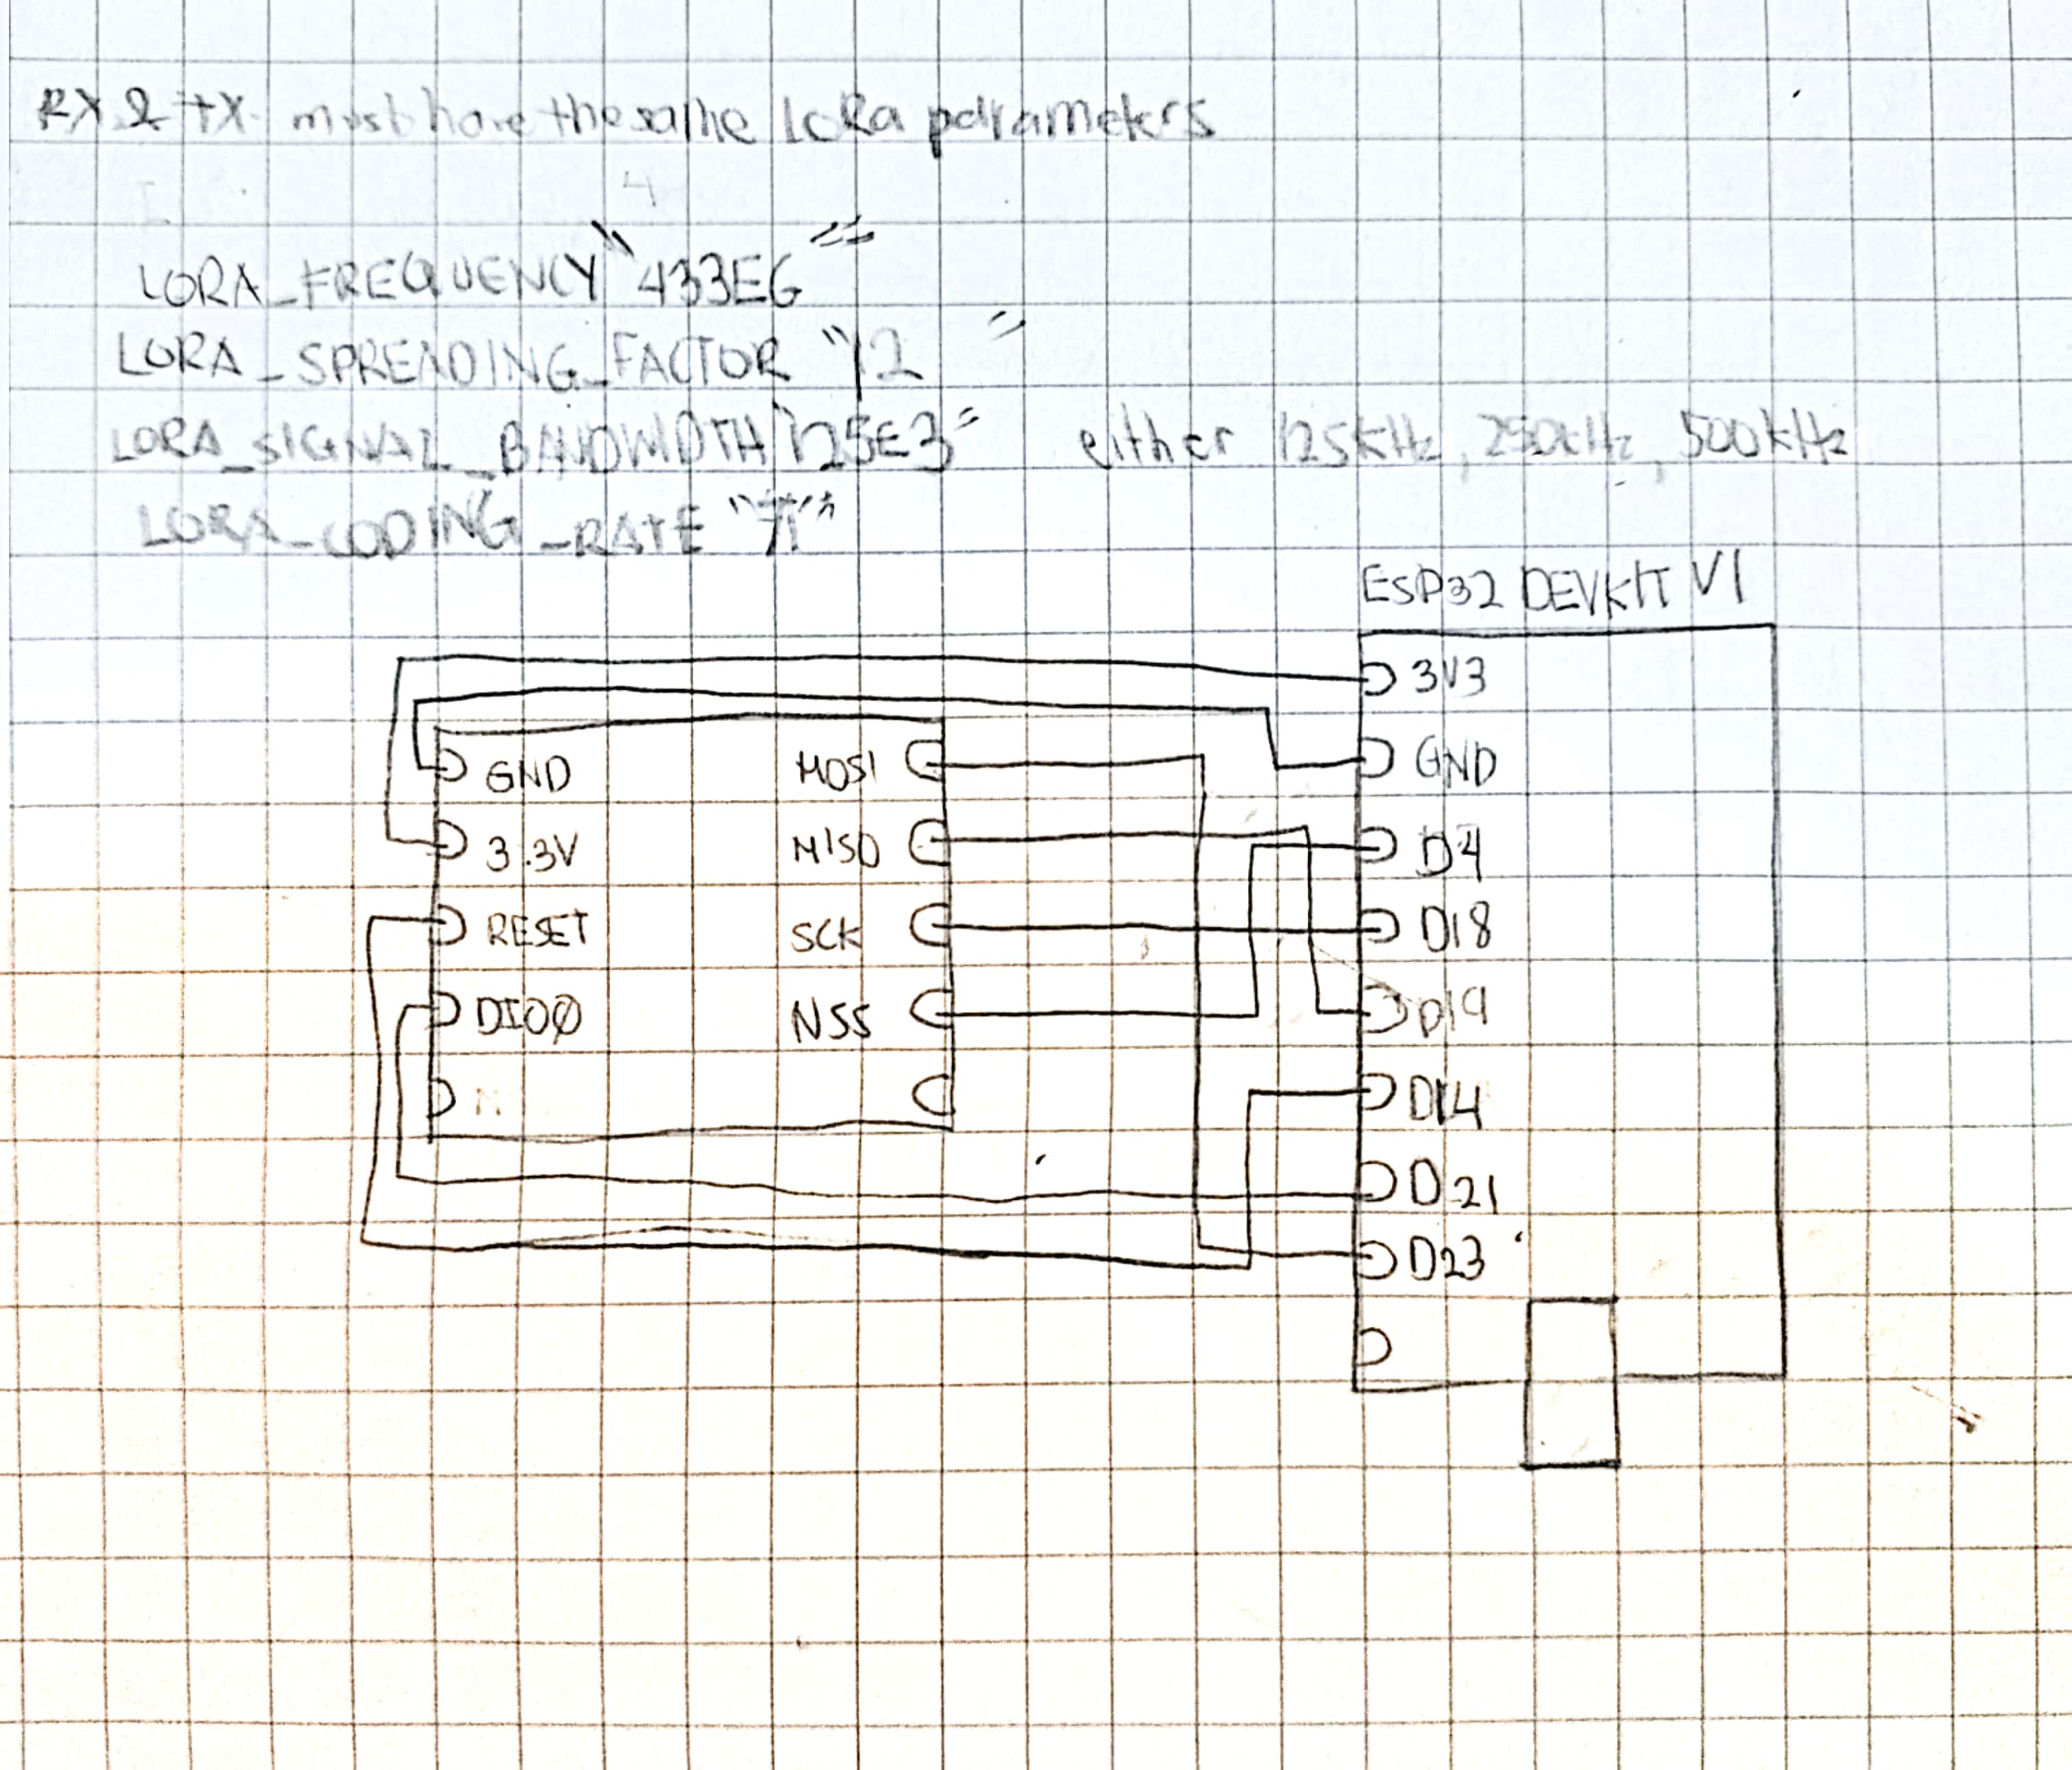 RX & TX must have the same LoRa parameters
LORA_FREQUENCY "433E6"
LORA_SPREADING_FACTOR "12"
LORA_SIGNAL_BANDWIDTH "125E3" either 125kHz, 250kHz, 500kHz
LORA_CODING_RATE
ESP32 DEVKIT V1
3V3
GND MOSI GND
3.3V MISO D4
RESET SCK D18
DIO0 NSS D19
D14
D21
D23